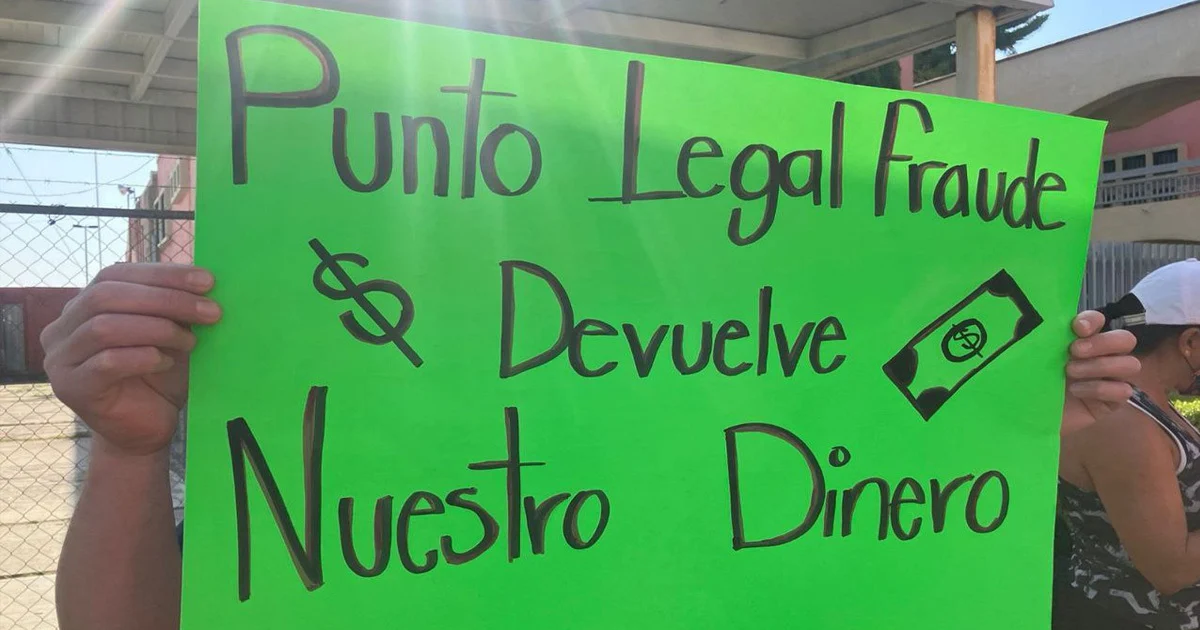 Punto Legal Fraude
$ Devuelve $
Nuestro Dinero